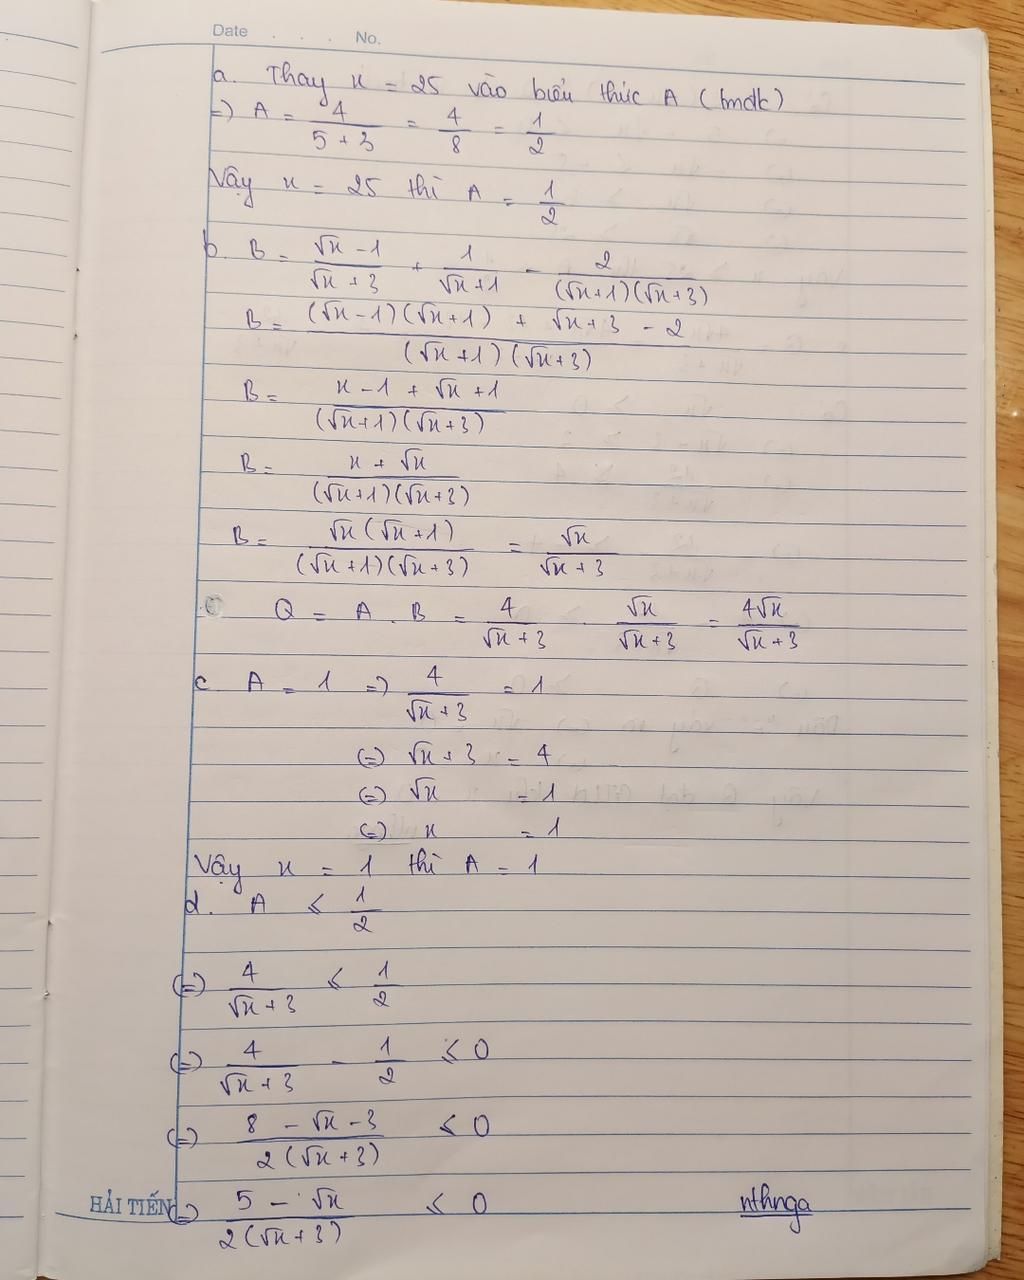 Date . . . No.
a. Thay x = 25 vào biểu thức A (tmđk)
=) A = 4/(5 + 3) = 4/8 = 1/2
Vậy x = 25 thì A = 1/2
b. B = (√x - 1)/(√x + 3) + 1/(√x + 1) - 2/((√x+1)(√x+3))
B = ((√x - 1)(√x + 1) + √x + 3 - 2)/((√x + 1)(√x + 3))
B = (x - 1 + √x + 1)/((√x + 1)(√x + 3))
B = (x + √x)/((√x + 1)(√x + 3))
B = (√x(√x + 1))/((√x + 1)(√x + 3)) = √x/(√x + 3)
Q = A . B = 4/(√x + 3) . √x/(√x + 3) = 4√x/(√x + 3)
c A = 1 =) 4/(√x + 3) = 1
(=) √x + 3 = 4
(=) √x = 1
(=) x = 1
Vậy x = 1 thì A = 1
d. A ≤ 1/2
(=) 4/(√x + 3) ≤ 1/2
(=) 4/(√x + 3) - 1/2 ≤ 0
(=) (8 - √x - 3)/(2(√x + 3)) ≤ 0
(=) (5 - √x)/(2(√x + 3)) ≤ 0
HẢI TIẾN
nthnga